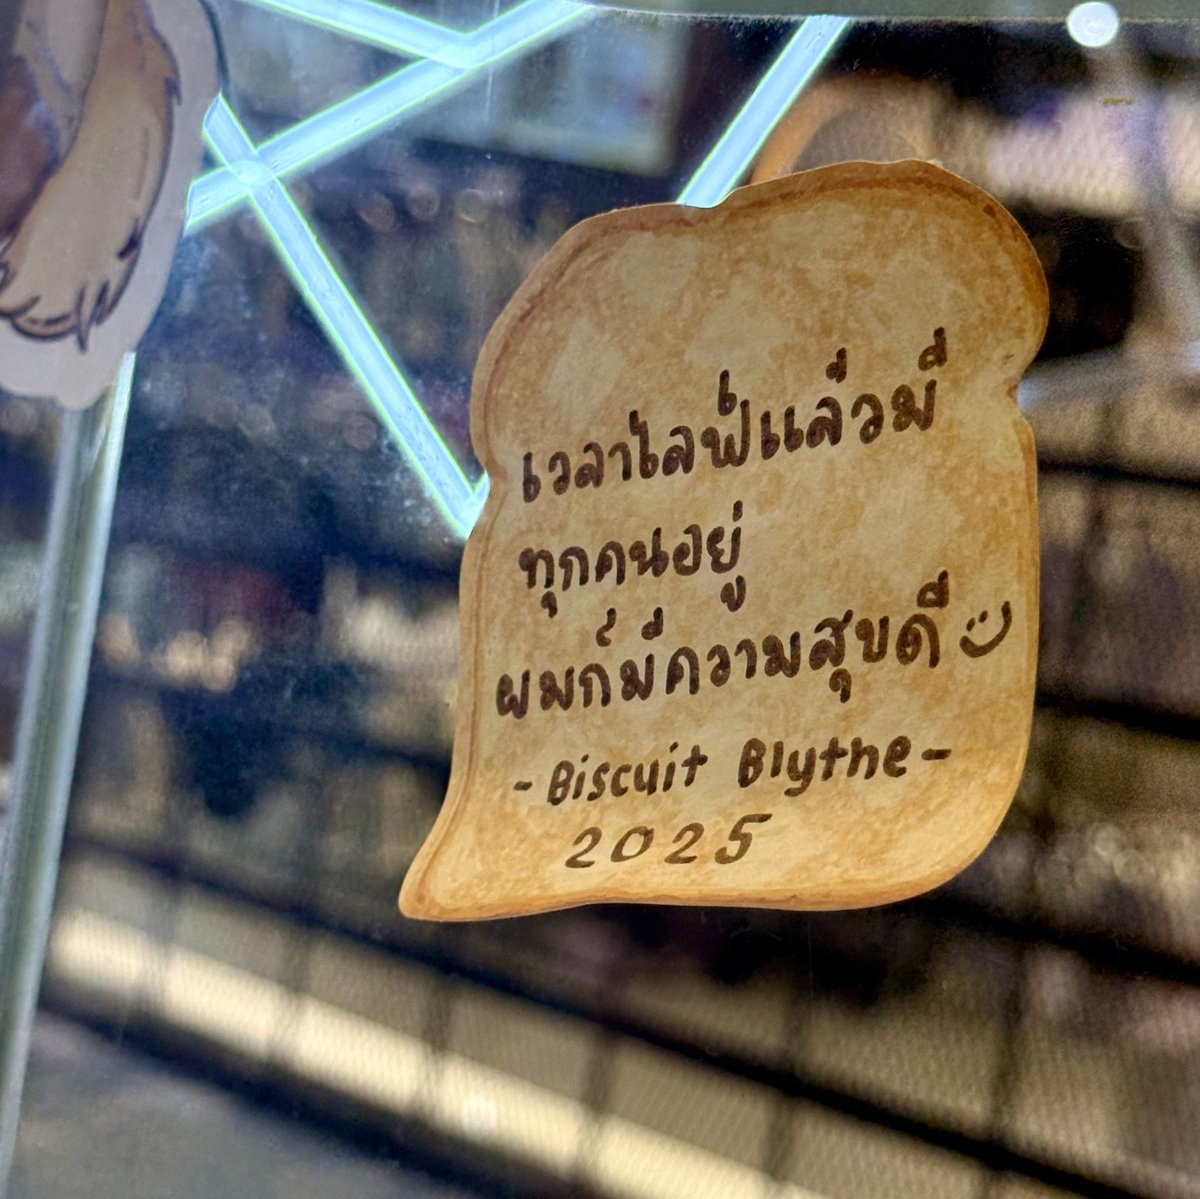 เวลาไลฟ์แล้วมี
ทุกคนอยู่
ผมก็มีความสุขดี :)
- Biscuit Blythe -
2025